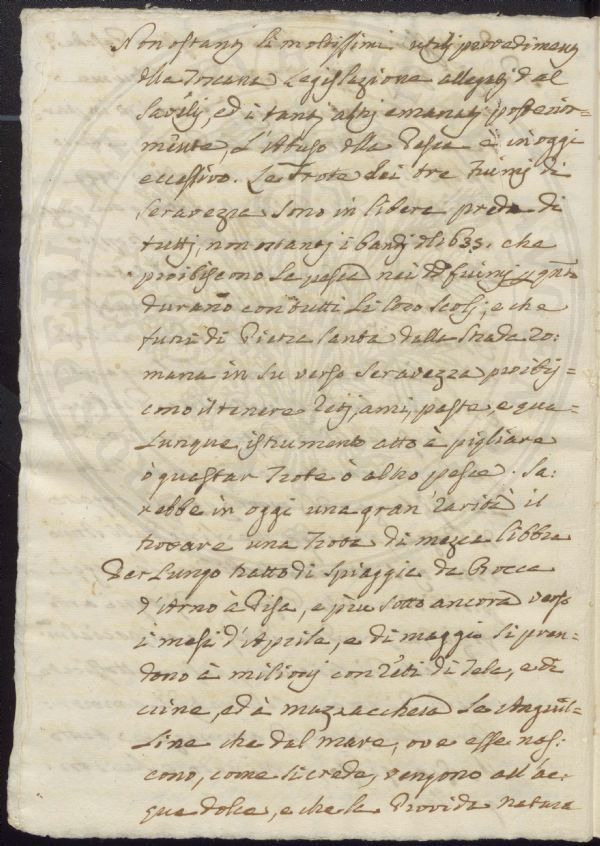 Non ostanti li moltissimi utili provedimenti
della Toscana Legislazione allegati dal
Savilj, ed i tanti altri emanati posterior-
mente, L'Abuso della Pesca è in oggi
eccessivo. Le Trote dei tre Fiumi di
Seravezza sono in libera preda di
tutti, non ostanti i bandi del 1633. che
proibiscono la pesca nei dd. fiumi p. q.nto
durano con tutti li loro scoli, e che
funi di Pietra Santa dalla Strada Ro:
mana in su verso Seravezza proibis=
cono il tenere Reti, ami, paste, e qua-
lunque istrumento atto à pigliare
ò guastar Trote ò altro pesce. Sa:
rebbe in oggi una gran rarità il
trovare una Trota di mezza libbra
Per Lungo tratto di spiaggia da Bocca
d'Arno à Pisa, e più sotto ancora verso
i mesi d'Aprile, e di maggio si pren-
dono à milioni con Reti di Tela, e di
crine, ed à mazzacchera le Anguil-
line che dal mare, ove esse nas:
cono, come si crede, vengono all'ac-
que dolce, e che la Provida natura